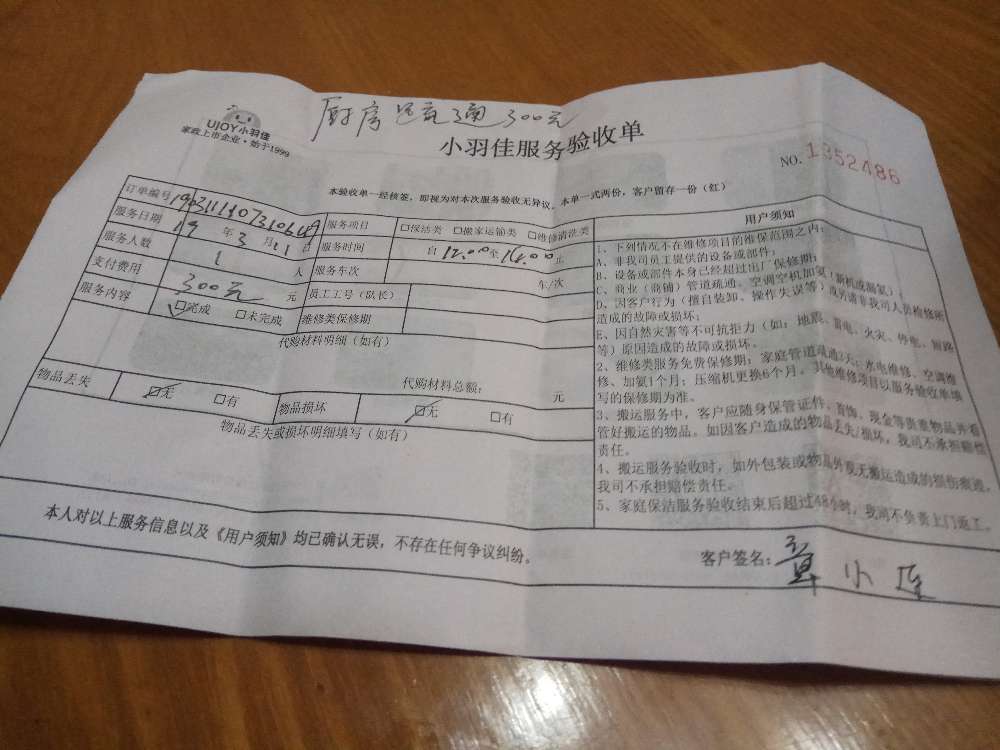 厨房 通 300元
UJOY小羽佳
家政上市企业·始于1999
小羽佳服务验收单
NO. 1352486
本验收单一经核签，即视为对本次服务验收无异议。本单一式两份，客户留存一份（红）
订单编号
服务项目 □保洁类 □搬家运输类 □维修清洗类
服务日期 19 年 3 月 11 日
服务时间 自 12.00 至 14.00 止
服务人数 1 人
服务车次 车/次
支付费用 300元 元
员工工号（队长）
服务内容 □完成 □未完成
维修类保修期
代购材料明细（如有）
代购材料总额： 元
物品丢失 □无 □有
物品损坏 □无 □有
物品丢失或损坏明细填写（如有）
用户须知
1、下列情况不在维修项目的维保范围之内：
A、非我司员工提供的设备或部件；
B、设备或部件本身已经超过出厂保修期；
C、商业（商铺）管道疏通、空调空机加氨（新机或漏氨）；
D、因客户行为（擅自装卸、操作失误等）或另请非我司人员检修所
造成的故障或损坏；
E、因自然灾害等不可抗拒力（如：地震、雷电、火灾、停电、短路
等）原因造成的故障或损坏。
2、维修类服务免费保修期：家庭管道疏通3天；水电维修、空调维
修、加氨1个月；压缩机更换6个月。其他维修项目以服务验收单填
写的保修期为准。
3、搬运服务中，客户应随身保管证件、首饰、现金等贵重物品并看
管好搬运的物品。如因客户造成的物品丢失/损坏，我司不承担赔偿
责任。
4、搬运服务验收时，如外包装或物品外观无搬运造成的损伤痕迹，
我司不承担赔偿责任。
5、家庭保洁服务验收结束后超过48小时，我司不负责上门返工。
本人对以上服务信息以及《用户须知》均已确认无误，不存在任何争议纠纷。
客户签名： 小莲